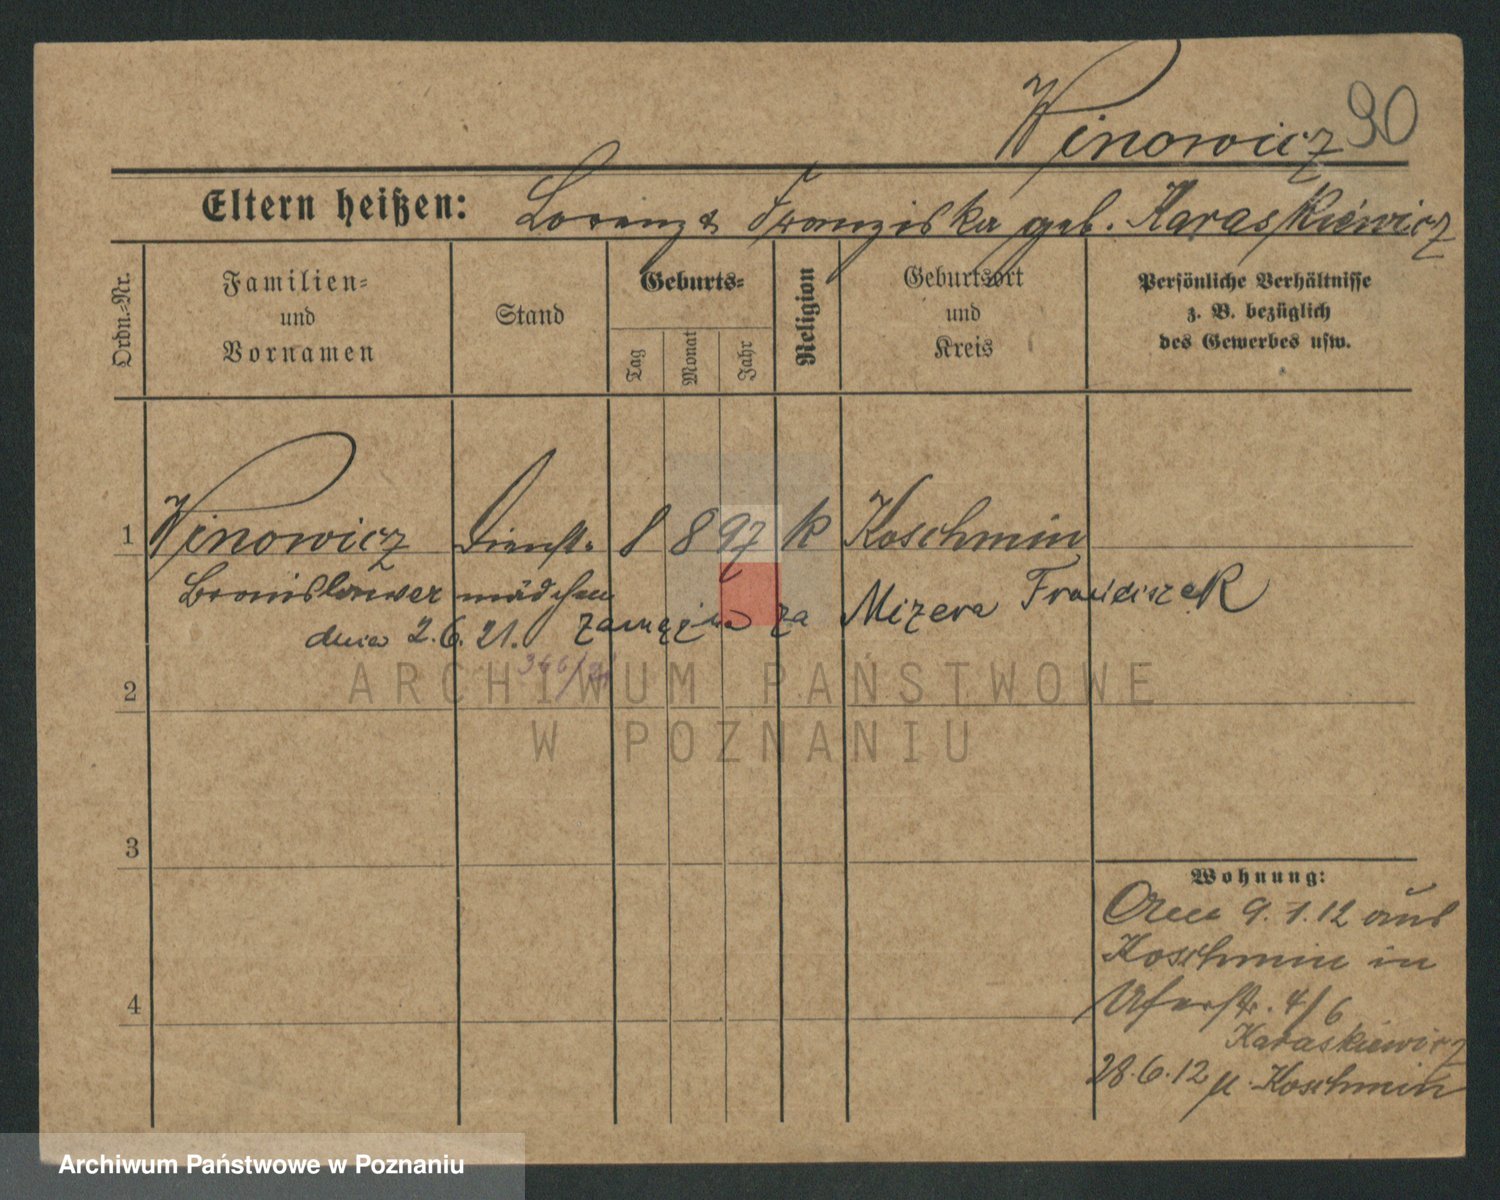 Winowicz 90
Eltern heißen: Lorenz & Franziska geb. Karaskiewicz
Ordn.-Nr.
Familien-
und
Vornamen
Stand
Geburts-
Tag
Monat
Jahr
Religion
Geburtsort
und
Kreis
Persönliche Verhältnisse
z. B. bezüglich
des Gewerbes usw.
1 Winowicz Dienst- 8 8 97 k Koschmin
mädchen
dnia 2.6.21. zamężna za Mizera Franciszek
366/21
2
ARCHIWUM PAŃSTWOWE
W POZNANIU
3
Wohnung:
9.1.12 aus
Koschmin in
4 Uferstr. 4/6
Karaskiewicz
28.6.12 n. Koschmin
Archiwum Państwowe w Poznaniu